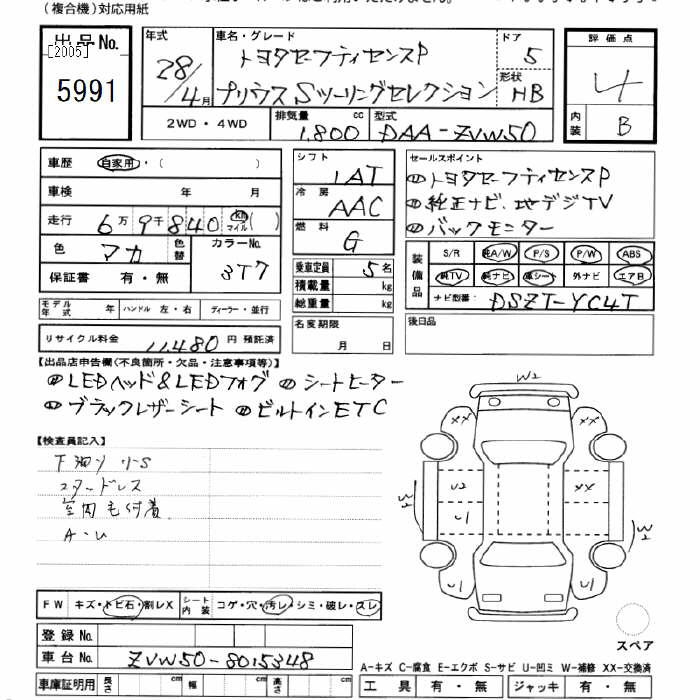 (複合機)対応用紙
出品No.
[2005]
5991
年式
28/4月
車名・グレード
トヨタセーフティセンスP
プリウス Sツーリングセレクション
ドア
5
形状
HB
評価点
4
内装
B
2WD・4WD
排気量
1,800 cc
型式
DAA-ZVW50
車歴
自家用・( )
車検 年 月
走行 6万9千840 km マイル( )
色
マカ
色替
カラーNo.
3T7
保証書 有・無
シフト
IAT
冷房
AAC
燃料
G
乗車定員 5名
積載量 kg
総重量 kg
セールスポイント
トヨタセーフティセンスP
純正ナビ、地デジTV
バックモニター
装備品
S/R 純A/W P/S P/W ABS
純TV 純ナビ 革シート 外ナビ エアB
ナビ型番 DSZT-YC4T
モデル年式 年 ハンドル 左・右 ディーラー・並行
名変期限
月 日
後日品
リサイクル料金 11,480 円 預託済
【出品店申告欄(不良箇所・欠品・注意事項等)】
LEDヘッド&LEDフォグ シートヒーター
ブラックレザーシート ビルトインETC
【検査員記入】
下廻り サ-S
スタッドレス
室内毛付着
A・U
W2
XX
XX
U2
XX
U1
W2
W2
U1
U1
スペア
FW キズ・トビ石・割レX
シート内装 コゲ・穴・汚レ・シミ・破レ・スレ
登録No.
車台No. ZVW50-8015348
車庫証明用 長さ cm 幅 cm 高さ cm
A-キズ C-腐食 E-エクボ S-サビ U-凹ミ W-補修 XX-交換済
工具 有・無 ジャッキ 有・無